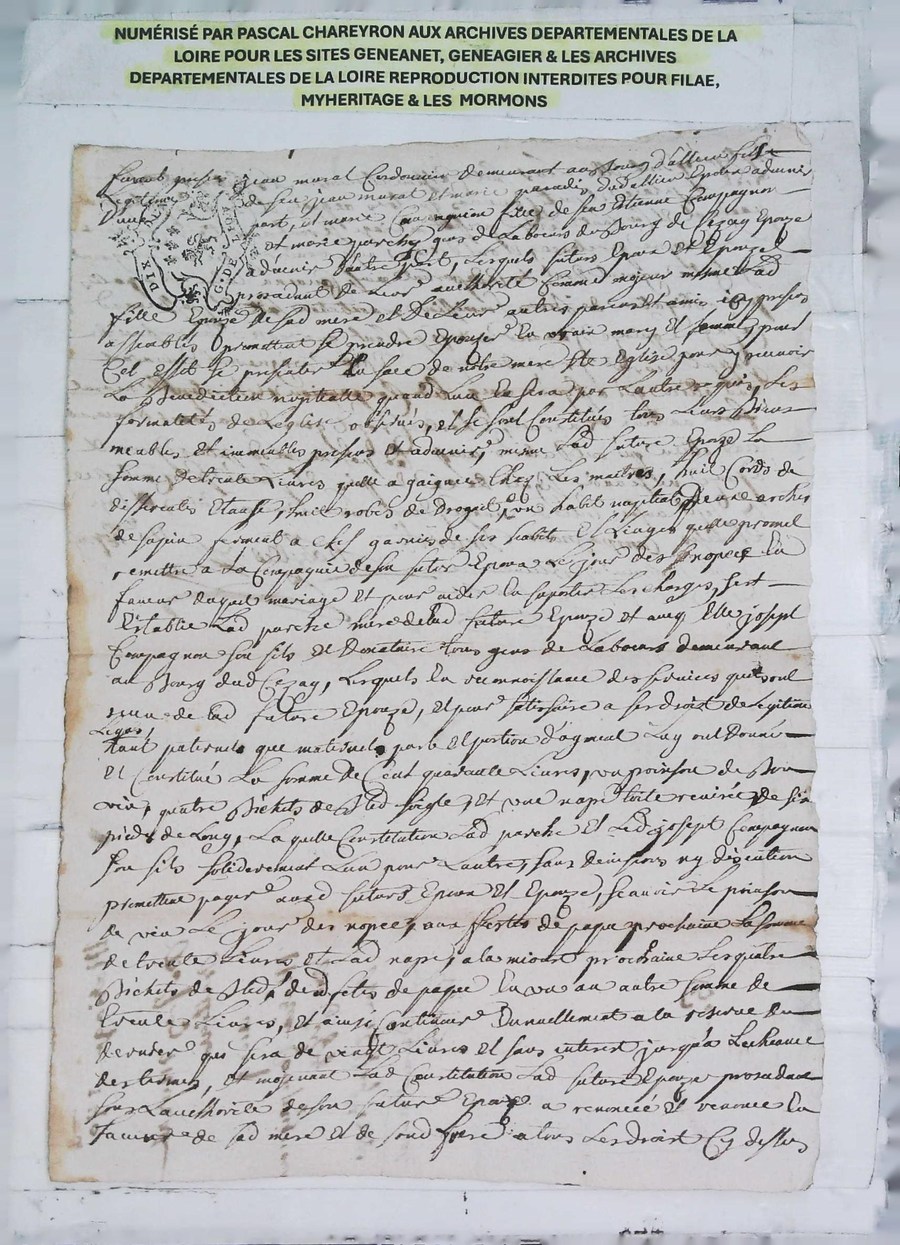 NUMÉRISÉ PAR PASCAL CHAREYRON AUX ARCHIVES DEPARTEMENTALES DE LA
LOIRE POUR LES SITES GENEANET, GENEAGIER & LES ARCHIVES
DEPARTEMENTALES DE LA LOIRE REPRODUCTION INTERDITES POUR FILAE,
MYHERITAGE & LES MORMONS
furent jean mural Cordonnier demeurant au bourg d'allieu fils
Legitime de feu jean mural et marie paradis dud allieu Epoux advenir
D'une part, et marie Compagnon fille de feu Etienne Compagnon
et marie parche gens de Labeurs du Bourg de Cezay Epouze
advenir d'autre part, Lesquels futurs Epoux Et Epouze
DIX G. DE
procedant de Leur authorité Comme majeur mesme Lad
fille Epouze de Sad mere et De Leurs autres parens et amis icy presens
assemblés promettent se prendre Epouser En vrair mary Et femme, pour
Cet effet se presenter En face de notre mere Ste Eglize pour y recevoir
La Benediction nuptialle quand L'un En sera par L'autre requis, Les
formalités de L'Eglise observés, et se sont Constitués tous Leurs Biens
meubles et immeubles presens et advenir, mesme Lad future Epouze La
somme de trente Livres quelle a gaignée Chez Les maitres, huit Cords de
differentes Etauf, huit robes de Droguet, un habit nuptial, une arche
de sapin fermant a Clef garnie de ses habits Et Linges quelle promet
remettre a La Compagnie de son futur Epoux Le jour des nopces En
faveur duquel mariage Et pour aider En suporter Les charges, s'est
Establie Lad parche mere de Lad future Epouze et avec Elle joseph
Compagnon son fils et Donataire tous gens de Labeurs demeurant
au Bourg dud Cezay, Lesquels En reconnoissance des services quils ont
de Lad future Epouze, et pour satisfaire a ses droits de Legitime
Legas,
tant paternels que maternels, parts Et portion d'augment Luy ont Donné
et Constitué La somme de Cent quarante Livres, un poinson de Bon
vin, quatre Bichets de Bled seigle, et une nape toile de six
pieds de Long, La quelle Constitution Lad parche Et Led joseph Compagnon
son fils solidairement L'un pour L'autre, sans division ny discution
promettent payer auxd futurs Epoux Et Epouze, sçavoir Le poinson
de vin Le jour des nopces, aux festes de paque prochaine La somme
de trente Livres et Lad nape, a la prochaine Les quatre
Bichets de Bled, desd fetes de paque En un an autre somme de
trente Livres, et ainsi Continuer annuellement a la reserve du
dernier qui sera de vingt Livres Et sans interest jusqua Lecheance
des termes, et moyenant Lad Constitution Lad future Epouze procedant
sous L'authorité de son futur Epoux a renoncé Et renonce En
faveur de sad mere et de sond frere a tous Les droits Cy dessus